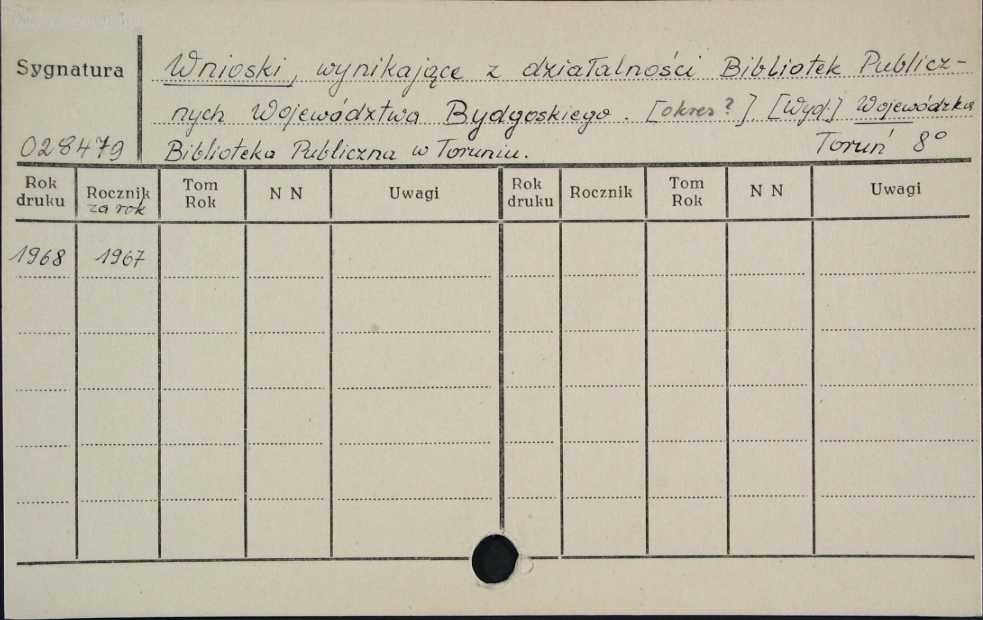 Sygnatura
Wnioski, wynikające z działalności Bibliotek Publicz-
nych Województwa Bydgoskiego. [okres?] [Wyd.] Wojewódzka
028479 Biblioteka Publiczna w Toruniu. Toruń 8°
Rok druku Rocznik za rok Tom Rok N N Uwagi Rok druku Rocznik Tom Rok N N Uwagi
1968 1967